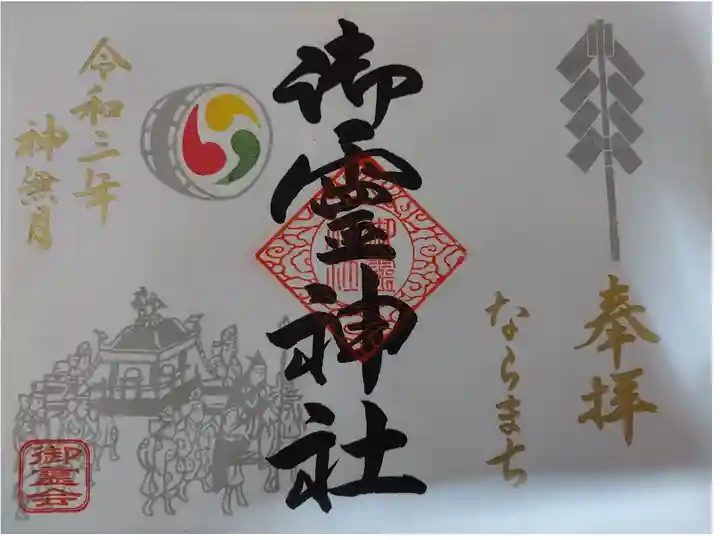 奉拝
ならまち
御霊神社
御霊神社
令和三年
神無月
御霊会